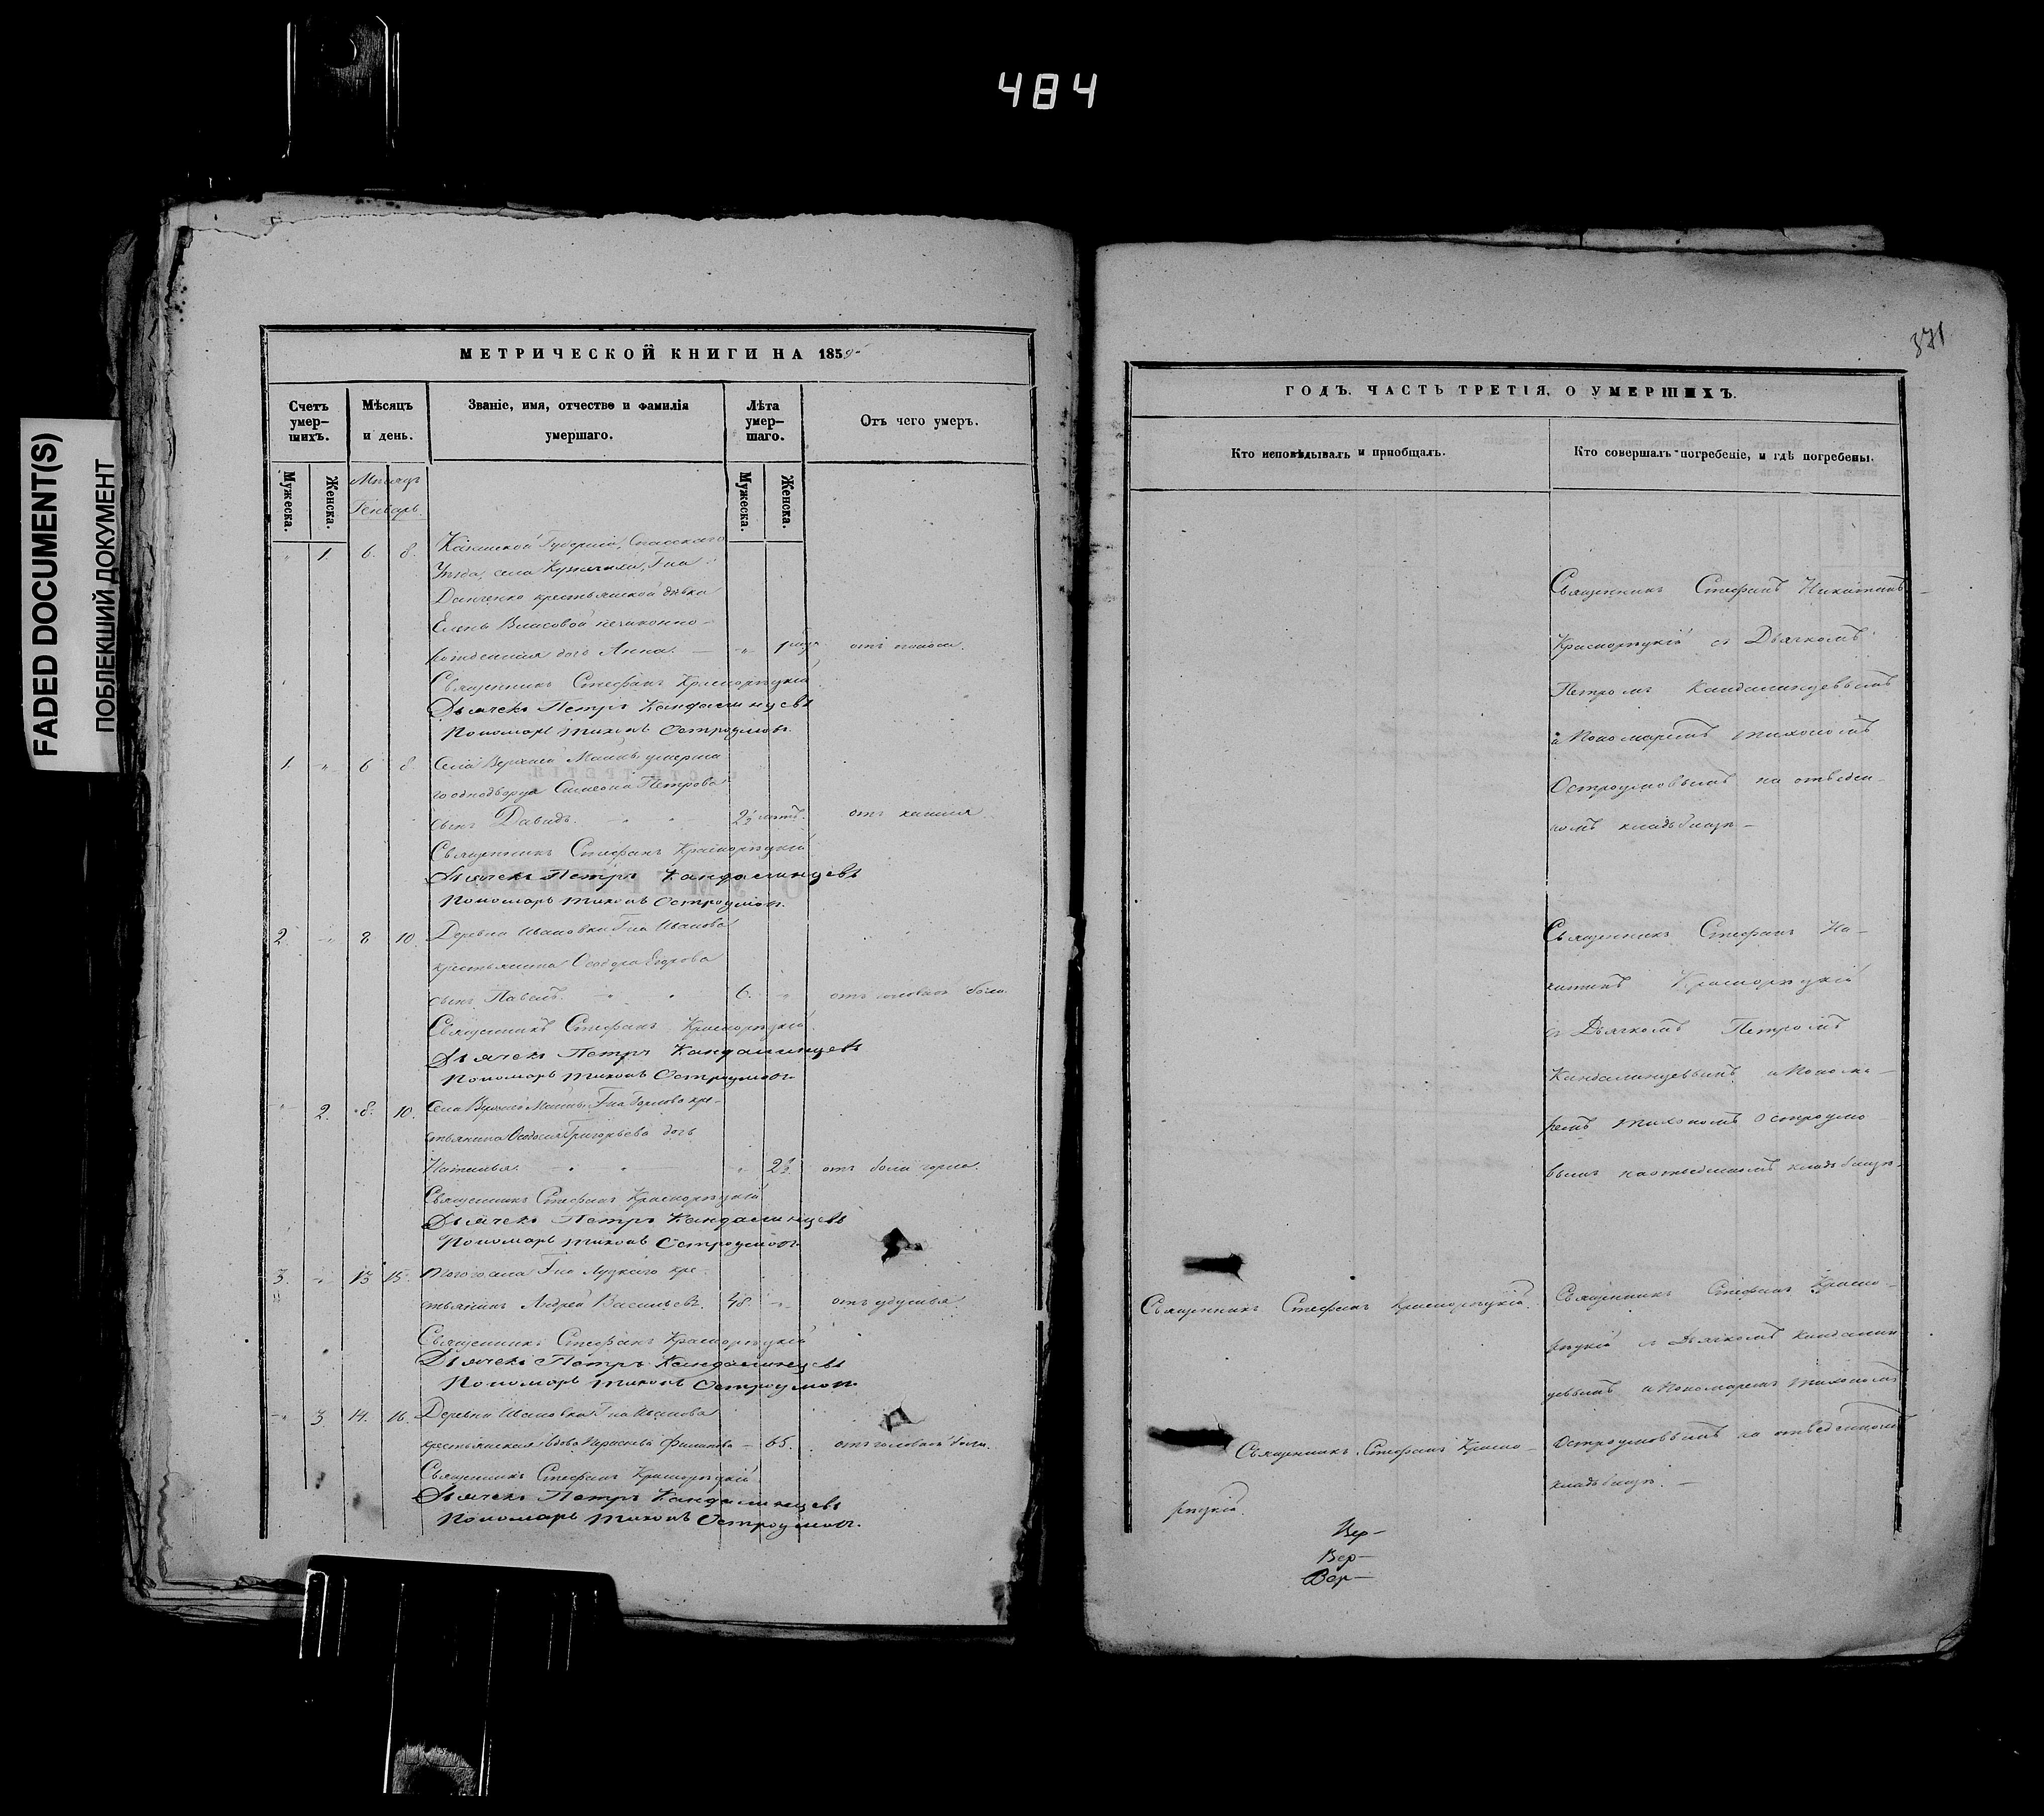 484
FADED DOCUMENT(S)
ПОБЛЕКШИЙ ДОКУМЕНТ
МЕТРИЧЕСКОЙ КНИГИ НА 1859
Счетъ умер-шихъ.
Мужеска.
Женска.
Мѣсяцъ и день.
Званіе, имя, отчество и фамилія умершаго.
Лѣта умер-шаго.
Мужеска.
Женска.
Отъ чего умеръ.
Мѣсяцъ
Генварь.
1. 6. 8. Казанской Губерніи, Спасскаго
Уѣзда, села
крестьянской дѣвки
Елены Власовой незаконно-
рожденная дочь Анна. 1 отъ поноса.
Священникъ Стефанъ Красногорецкій
Дьячекъ Петръ Кандалинцевъ
Пономарь Тихонъ Остроумовъ.
1. 6 8 Села Верхней Майны умерша
го однодворца Симеона Петрова
сынъ Давидъ. 2½ лѣтъ. отъ кашля
Священникъ Стефанъ Красногорецкій
Дьячекъ Петръ Кандалинцевъ
Пономарь Тихонъ Остроумовъ.
2. 8 10. Деревни Ивановки Гна Иванова
крестьянина Ѳеодора Егорова
сынъ Павелъ. 6. отъ головной боли
Священникъ Стефанъ Красногорецкій.
Дьячекъ Петръ Кандалинцевъ
Пономарь Тихонъ Остроумовъ.
2. 8. 10. Села Верхней Майны, Гна кре-
стьянина Григорьева дочь
Наталья. 2½ отъ боли горла.
Священникъ Стефанъ Красногорецкій
Дьячекъ Петръ Кандалинцевъ
Пономарь Тихонъ Остроумовъ.
3. 13 15. Того села Гна кре-
стьянинъ Андрей Васильевъ. 48. отъ удушья.
Священникъ Стефанъ Красногорецкій
Дьячекъ Петръ Кандалинцевъ
Пономарь Тихонъ Остроумовъ.
3 14. 16. Деревни Ивановки Гна Иванова
крестьянская вдова 65. отъ головной боли.
Священникъ Стефанъ Красногорецкій
Дьячекъ Петръ Кандалинцевъ
Пономарь Тихонъ Остроумовъ.
371
ГОДЪ. ЧАСТЬ ТРЕТІЯ, О УМЕРШИХЪ.
Кто исповѣдывалъ и пріобщалъ.
Кто совершалъ погребеніе, и гдѣ погребены.
Священникъ Стефанъ Никитинъ
Красногорецкій съ Дьячкомъ
Петромъ Кандалинцевымъ
и Пономаремъ Тихономъ
Остроумовымъ на отведен-
номъ кладбищѣ
Священникъ Стефанъ Ни-
китинъ Красногорецкій
съ Дьячкомъ Петромъ
Кандалинцевымъ и Понома-
ремъ Тихономъ Остроумо
вымъ на отведенномъ кладбищѣ.
Священникъ Стефанъ Красногорецкій.
Священникъ Стефанъ Красно-
рецкій съ Дьячкомъ Кандалин
цевымъ и Пономаремъ Тихономъ
Остроумовымъ на отведенномъ
кладбищѣ.
Священникъ Стефанъ Красно-
рецкій.
Вер-
Вер-